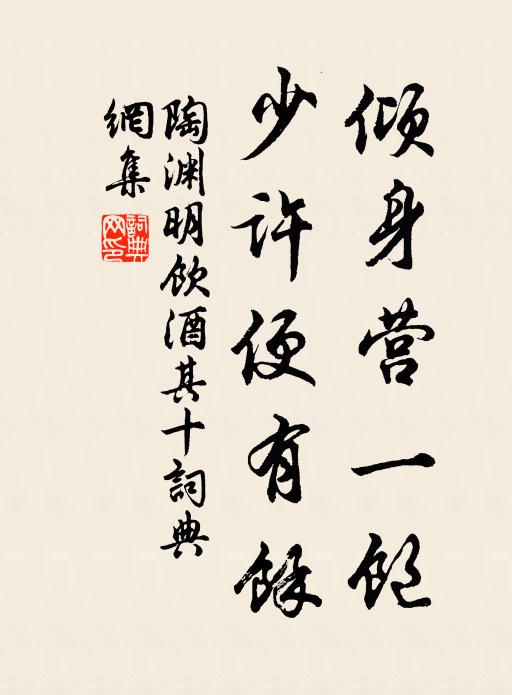 倾身营一饱
少许便有馀
陶渊明饮酒其十詞典
網集
詞典網印